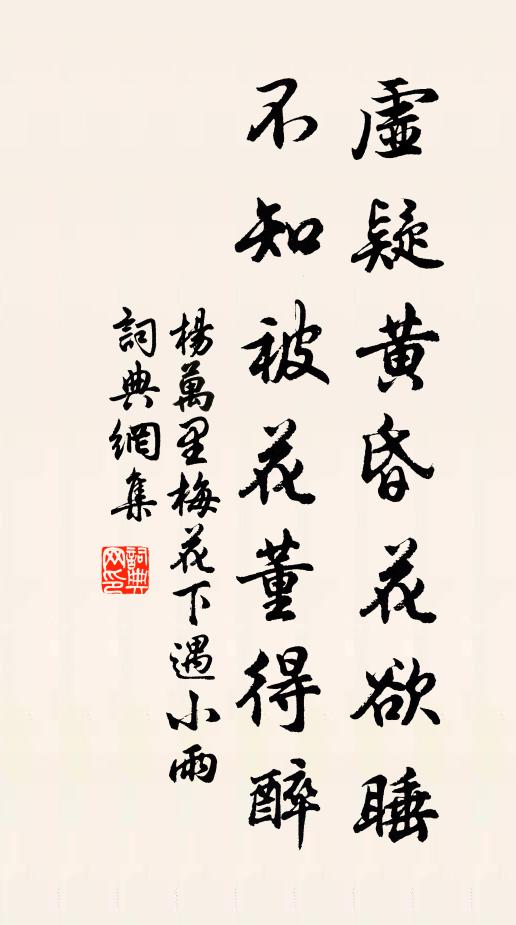 虛疑黄昏花欲睡
不知被花董得醉
楊萬里梅花下遇小雨
詞典網集
詞典網印